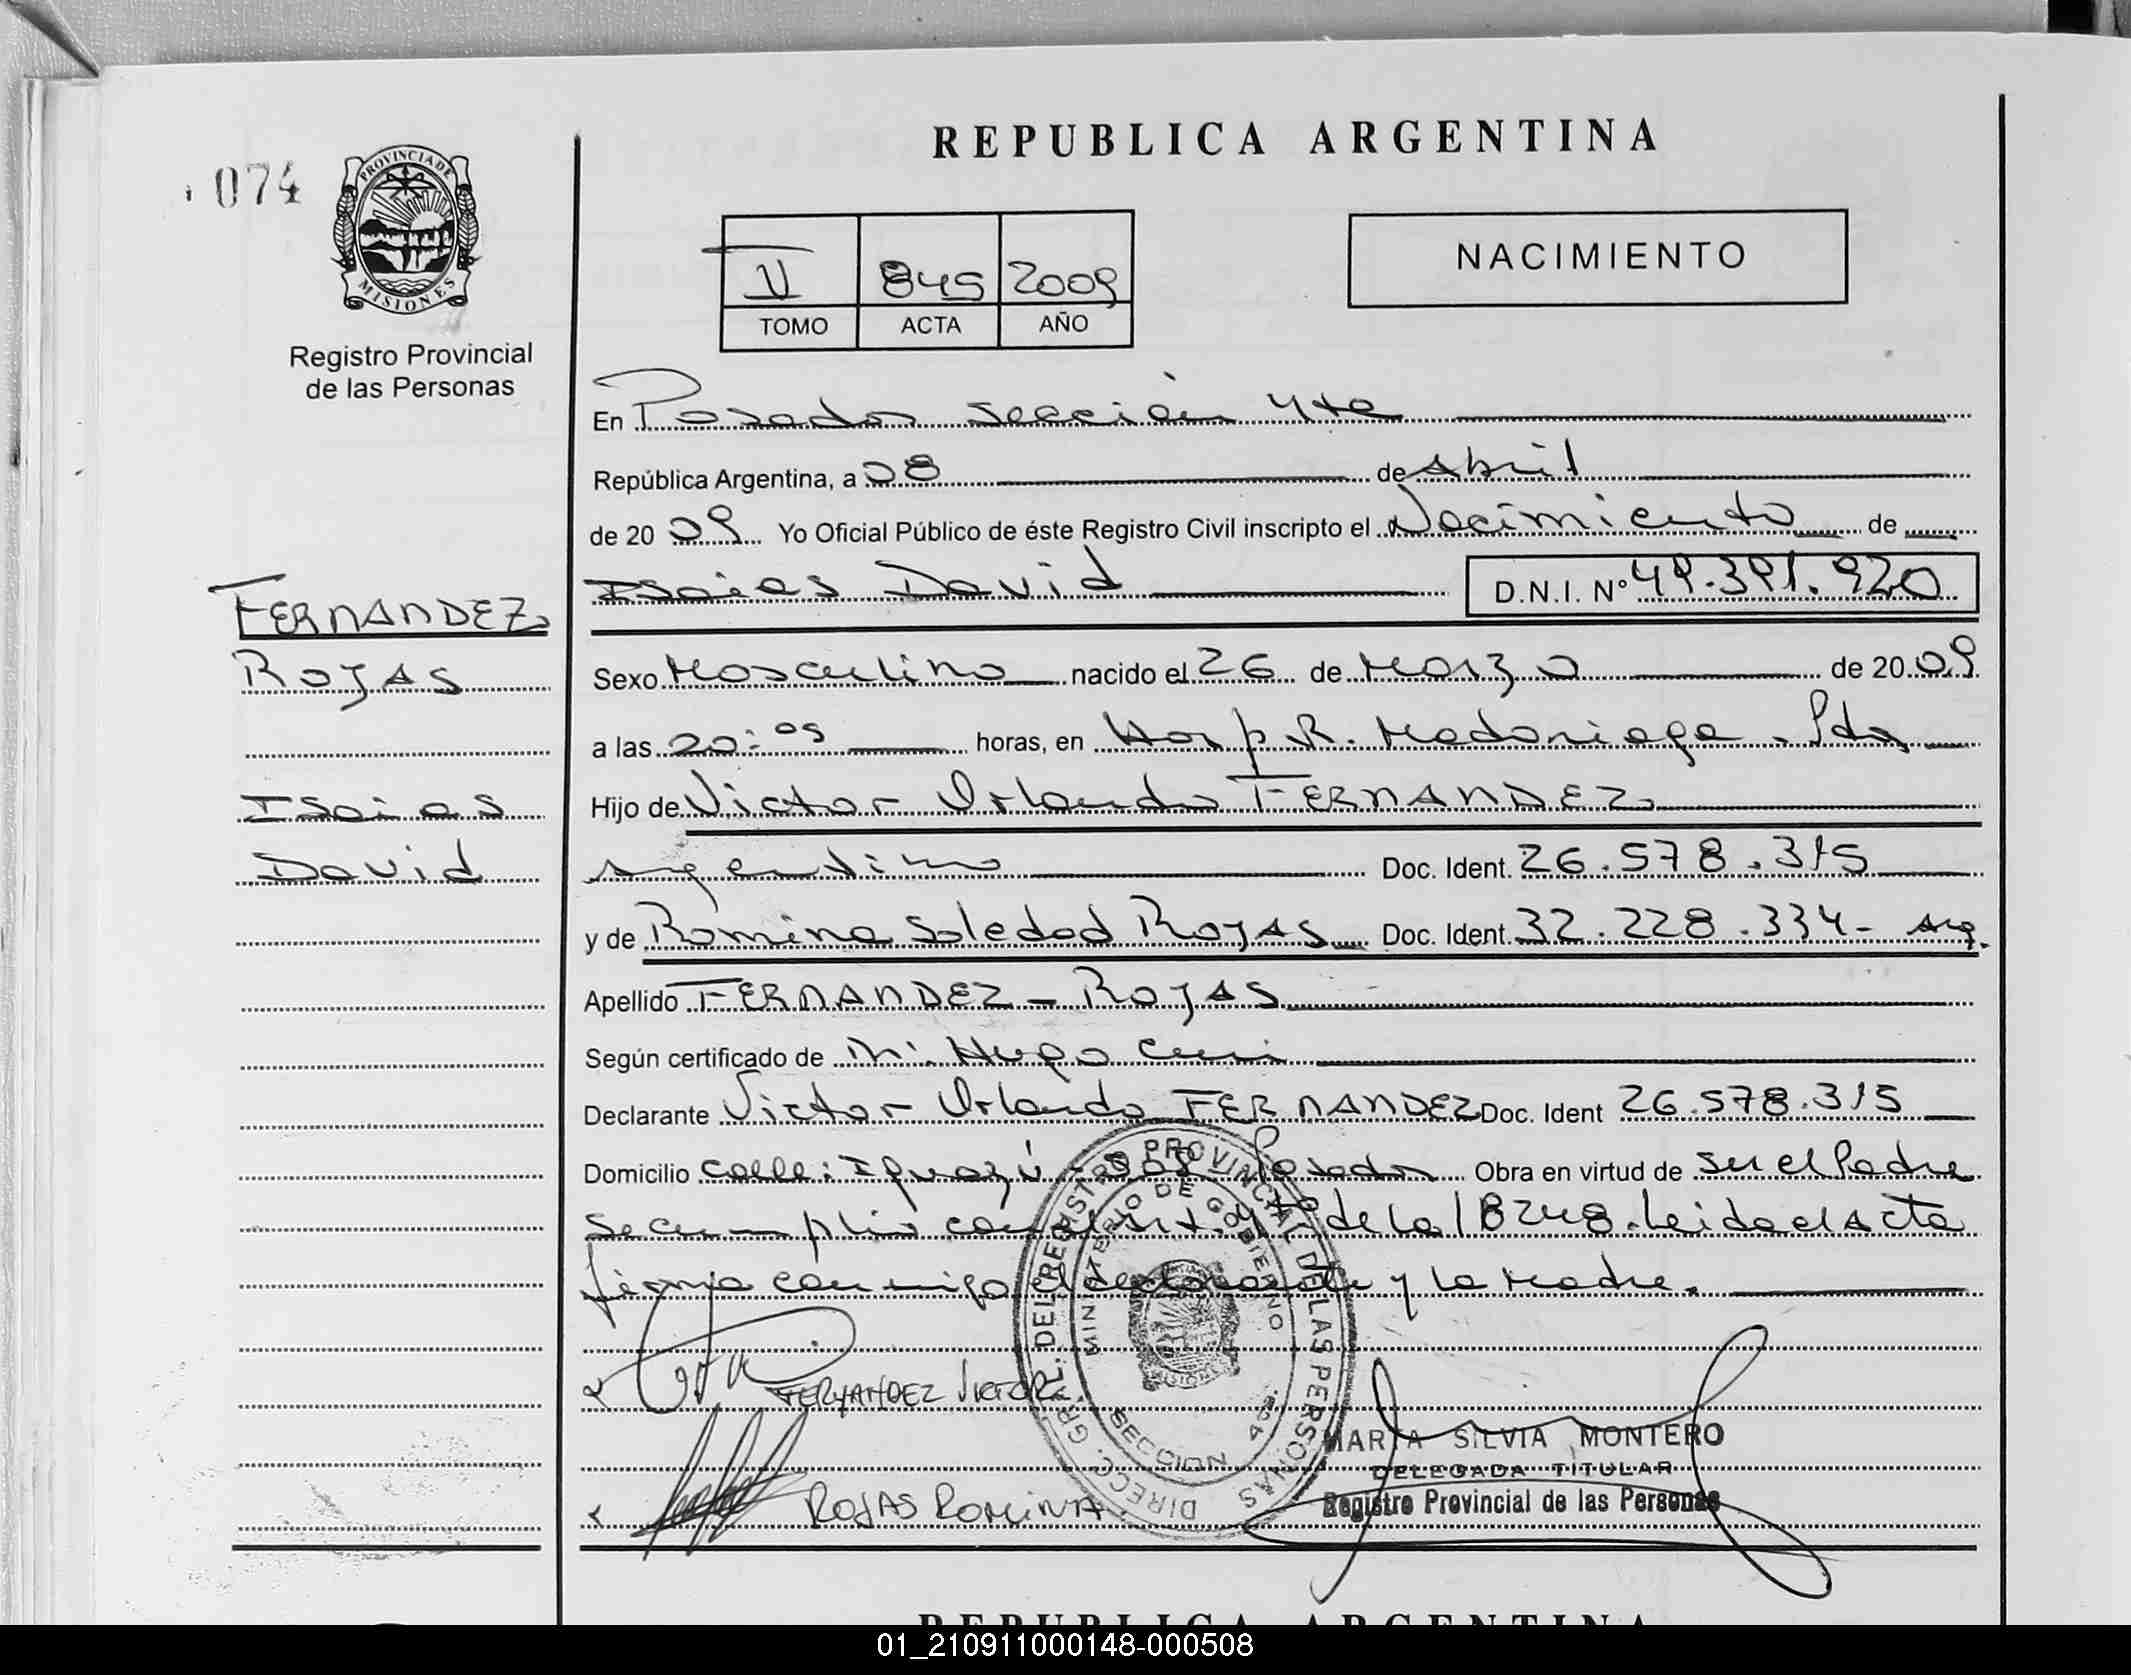 REPUBLICA ARGENTINA
074
PROVINCIA DE
MISIONES
Registro Provincial
de las Personas
NACIMIENTO
V 845 2009
TOMO ACTA AÑO
En Posadas sección 4ta
República Argentina, a 08 de Abril
de 20 09 Yo Oficial Público de éste Registro Civil inscripto el Nacimiento de
Isaias David D.N.I. Nº 49.391.920
FERNANDEZ
ROJAS
Isaias
David
Sexo Masculino nacido el 26 de Marzo de 20 09
a las 20:05 horas, en Hosp. R. Madariaga. Pdas
Hijo de Victor Orlando FERNANDEZ
argentino Doc. Ident. 26.578.315
y de Romina Soledad ROJAS Doc. Ident. 32.228.334- Arg.
Apellido FERNANDEZ - ROJAS
Según certificado de Hugo
Declarante Victor Orlando FERNANDEZ Doc. Ident 26.578.315
Domicilio calle: Iguazú Posadas Obra en virtud de ser el Padre
se cumplio con el Art. 4to de la 18248. Leida el Acta
firma conmigo el declarante y la Madre.
FERNANDEZ VICTOR
ROJAS ROMINA
DIRECC. GRAL. DEL REGISTRO PROVINCIAL DE LAS PERSONAS
MINISTERIO DE GOBIERNO
MISIONES
SECCION 4ta.
MARIA SILVIA MONTERO
DELEGADA TITULAR
Registro Provincial de las Personas
REPUBLICA ARGENTINA
01_210911000148-000508